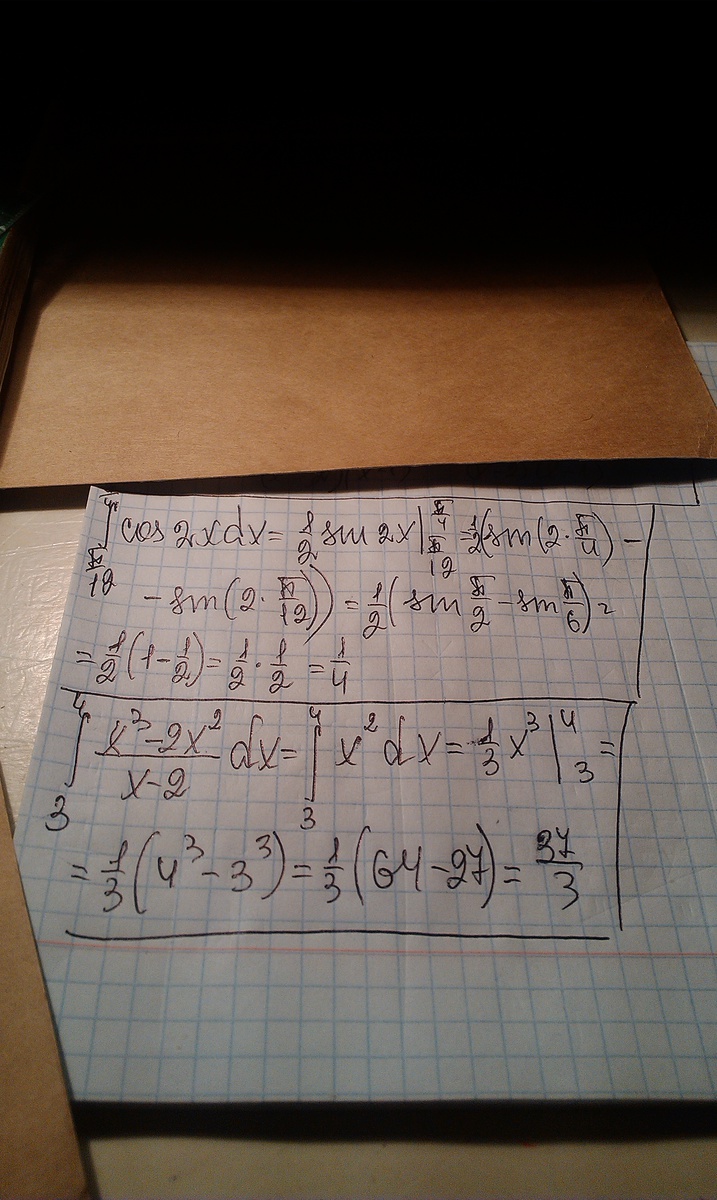 ∫_{π/12}^{π/4} cos 2x dx = 1/2 sin 2x |_{π/12}^{π/4} = 1/2 (sin(2 · π/4) −
− sin(2 · π/12)) = 1/2 (sin π/2 − sin π/6) =
= 1/2 (1 − 1/2) = 1/2 · 1/2 = 1/4
∫_3^4 (x³ − 2x²)/(x − 2) dx = ∫_3^4 x² dx = 1/3 x³ |_3^4 =
= 1/3 (4³ − 3³) = 1/3 (64 − 27) = 37/3